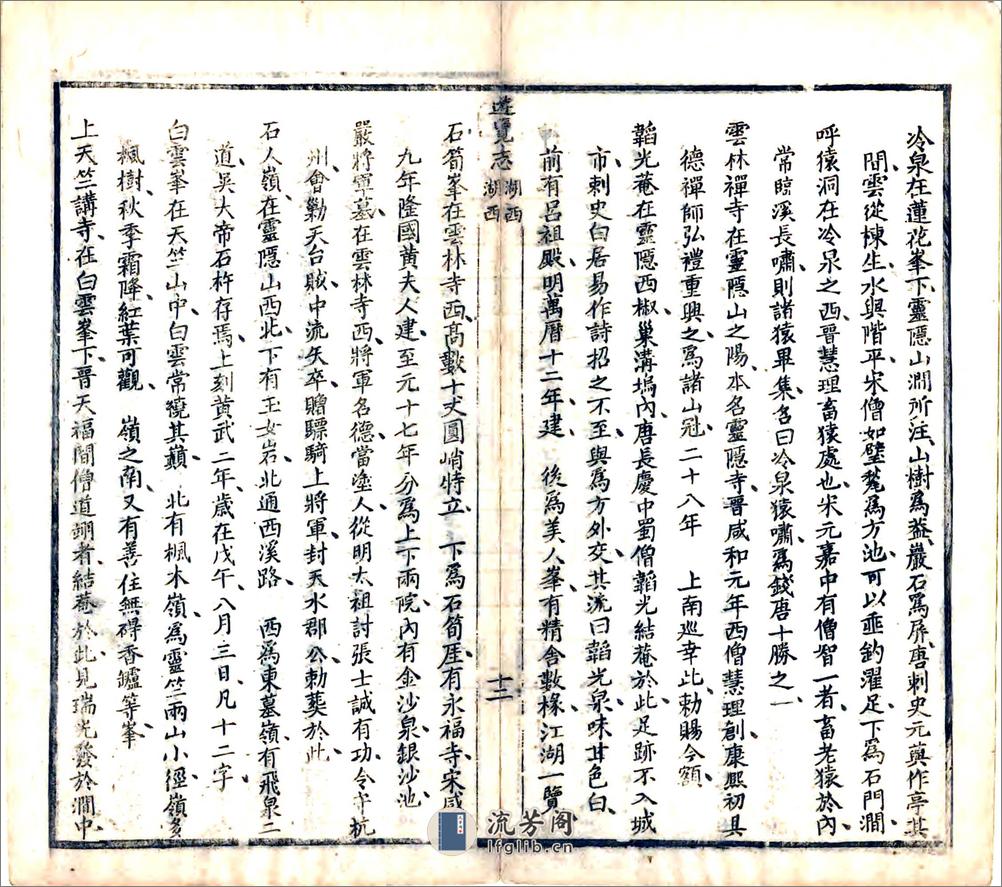 冷泉在蓮花峯下靈隱山澗所汪山樹爲葢巖石爲屏唐刺史元藇作亭其
間雲從棟生水與階平宋僧如璧甃爲方池可以垂釣濯足下爲石門澗
呼猿洞在冷泉之西晉慧理畜猿處也宋元嘉中有僧智一者畜老猿於內
常臨溪長嘯則諸猿畢集名曰冷泉猿嘯爲錢唐十勝之一
雲林禪寺在靈隱山之陽本名靈隱寺晉咸和元年西僧慧理創康熙初具
德禪師弘禮重興之爲諸山冠二十八年　上南巡幸此勅賜今額
韜光菴在靈隱西椒巢溝塢內唐長慶中蜀僧韜光結菴於此足跡不入城
市刺史白居易作詩招之不至與爲方外交其流曰韜光泉味甘色白
前有呂祖殿明萬曆十二年建　後爲美人峯有精舍數椽江湖一覽
遊覽志 湖西 湖西
十二
石筍峯在雲林寺西高數十丈圓峭特立　下爲石筍厓有永福寺宋咸
九年隆國黃夫人建至元十七年分爲上下兩院內有金沙泉銀沙池
嚴將軍墓在雲林寺西將軍名德當塗人從明太祖討張士誠有功令守杭
州會勦天台賊中流矢卒贈驃騎上將軍封天水郡公勅葬於此
石人嶺在靈隱山西北下有玉女岩北通西溪路　西爲東墓嶺有飛泉二
道吳大帝石杵存焉上刻黃武二年歲在戊午八月三日凡十二字
白雲峯在天竺山中白雲常繞其巔　北有楓木嶺爲靈竺兩山小徑嶺多
楓樹秋季霜降紅葉可觀　嶺之南又有善住無碍香鑪等峯
上天竺講寺在白雲峯下晉天福間僧道翊者結菴於此見瑞光發於澗中
流芳阁
lfglib.cn